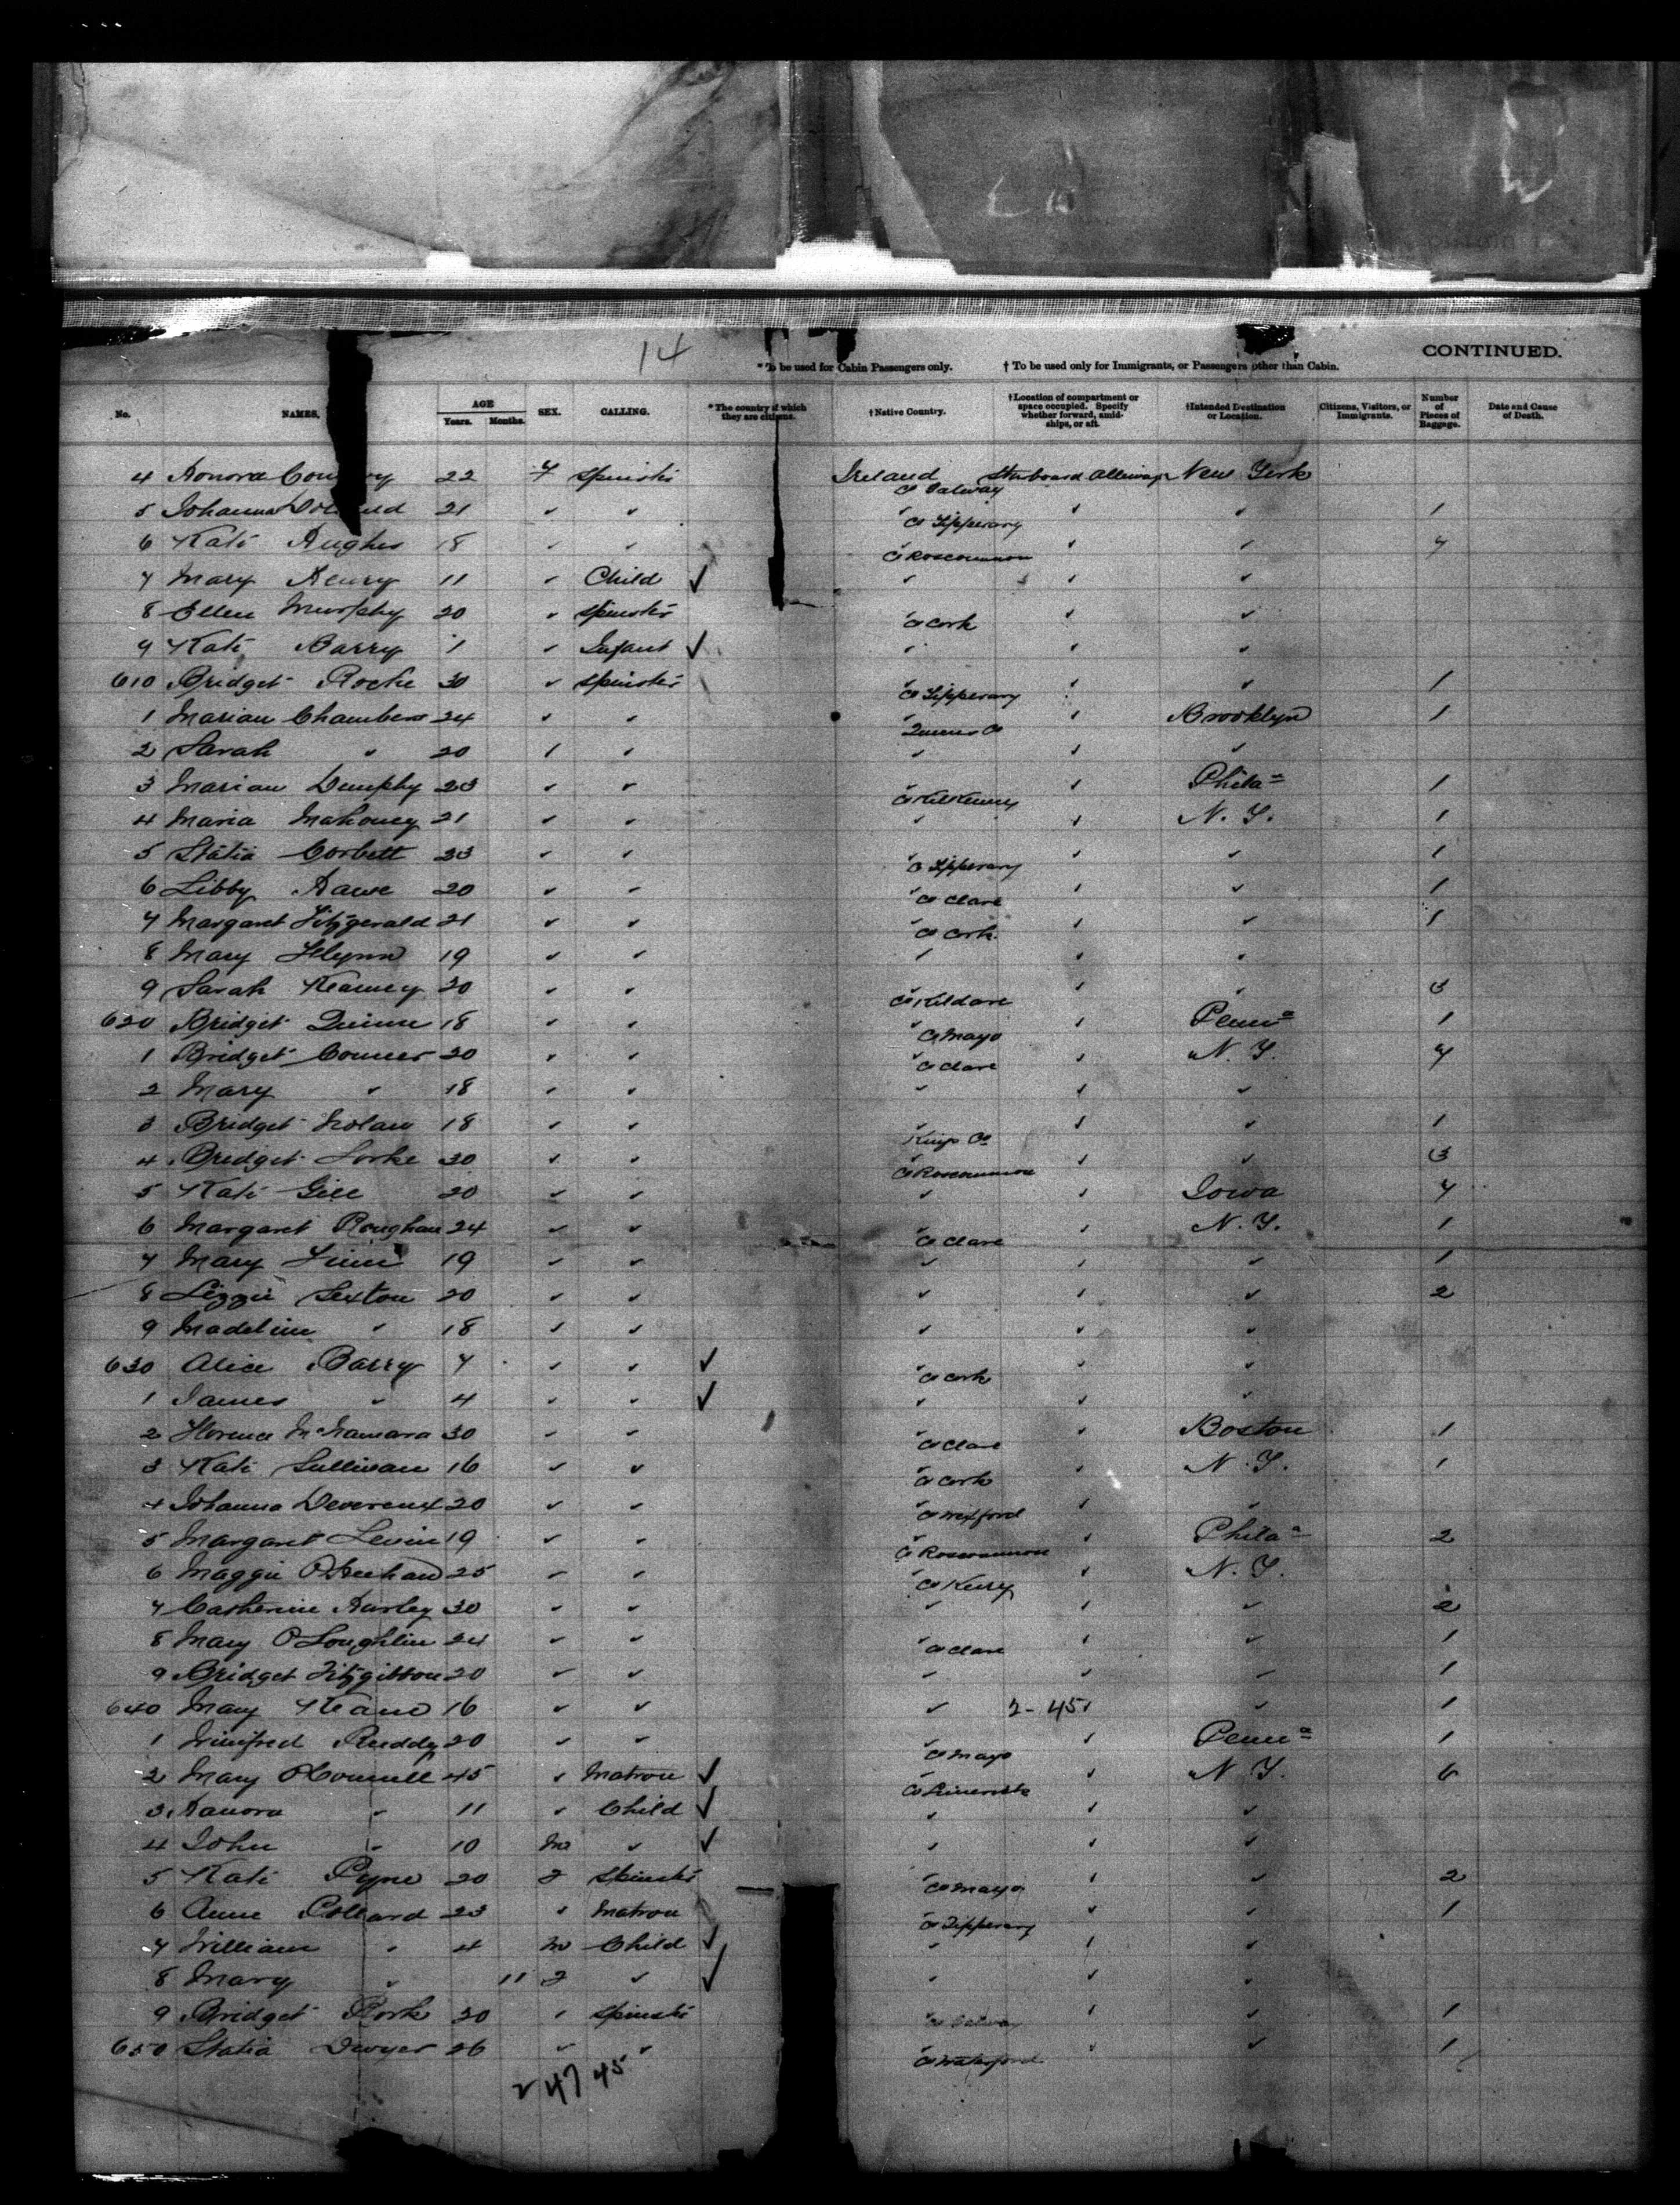 14
CONTINUED.
* To be used for Cabin Passengers only. † To be used only for Immigrants, or Passengers other than Cabin.
No. NAMES. AGE Years. Months. SEX. CALLING. * The country of which they are citizens. † Native Country. † Location of compartment or space occupied. Specify whether forward, amidships, or aft. † Intended Destination or Location. Citizens, Visitors, or Immigrants. Number of Pieces of Baggage. Date and Cause of Death.
4 Honora 22 f Spinster Ireland Co Galway Starboard Alleiway New York
5 Johanna 21 " " " Co Tipperary " " 1
6 Kate Hughes 18 " " " Co Roscommon " " 4
7 Mary Henry 11 " Child ✓ " " "
8 Ellen Murphy 20 " Spinster " Co Cork " "
9 Kate Barry 1 " Infant ✓ " " "
610 Bridget Roche 30 " Spinster " Co Tipperary " " 1
1 Marian Chambers 24 " " " Queens Co " Brooklyn 1
2 Sarah " 20 " " " " "
3 Marian Dunphy 23 " " " Co Kilkenny " Phila 1
4 Maria Mahoney 21 " " " " N. Y. 1
5 Statia Corbett 23 " " " Co Tipperary " " 1
6 Libby Hawe 20 " " " Co Clare " " 1
7 Margaret Fitzgerald 21 " " " Co Cork " " 1
8 Mary Flynn 19 " " " " "
9 Sarah Kearney 20 " " " Co Kildare " " 3
620 Bridget Quinn 18 " " " Co Mayo " Penna 1
1 Bridget Conners 20 " " " Co Clare " N. Y. 4
2 Mary " 18 " " " " "
3 Bridget Nolan 18 " " " Kings Co " " 1
4 Bridget 30 " " " Co Roscommon " " 3
5 Kate Gill 20 " " " " Iowa 4
6 Margaret Roughan 24 " " " Co Clare " N. Y. 1
7 Mary 19 " " " " " 1
8 Lizzie Sexton 20 " " " " " 2
9 Madeline " 18 " " " " "
630 Alice Barry 7 " " ✓ " Co Cork " "
1 James " 4 " " ✓ " " "
2 Florence McNamara 30 " " " Co Clare " Boston 1
3 Kate Sullivan 16 " " " Co Cork " N. Y. 1
4 Johanna Devereux 20 " " " Co Wexford " "
5 Margaret Levin 19 " " " Co Roscommon " Phila 2
6 Maggie 25 " " " Co Kerry " N. Y.
7 Catherine Hurley 30 " " " " " 2
8 Mary O'Loughlin 24 " " " Co Clare " " 1
9 Bridget Fitzgibbon 20 " " " " " 1
640 Mary Keane 16 " " " 2-45 " " 1
1 Winifred Ruddy 20 " " " Co Mayo " Penna 1
2 Mary O'Connell 45 " Matron ✓ " Co Limerick " N. Y. 6
3 Hanora " 11 " Child ✓ " " "
4 John " 10 m " ✓ " " "
5 Kate Pyne 20 f Spinster " Co Mayo " " 2
6 Anne Pollard 23 " Matron " Co Tipperary " " 1
7 William " 4 m Child ✓ " " "
8 Mary " 11 f " ✓ " " "
9 Bridget Rork 20 " Spinster " Co Galway " " 1
650 Statia Dwyer 26 " " " Co Waterford " " 1
2 47 45